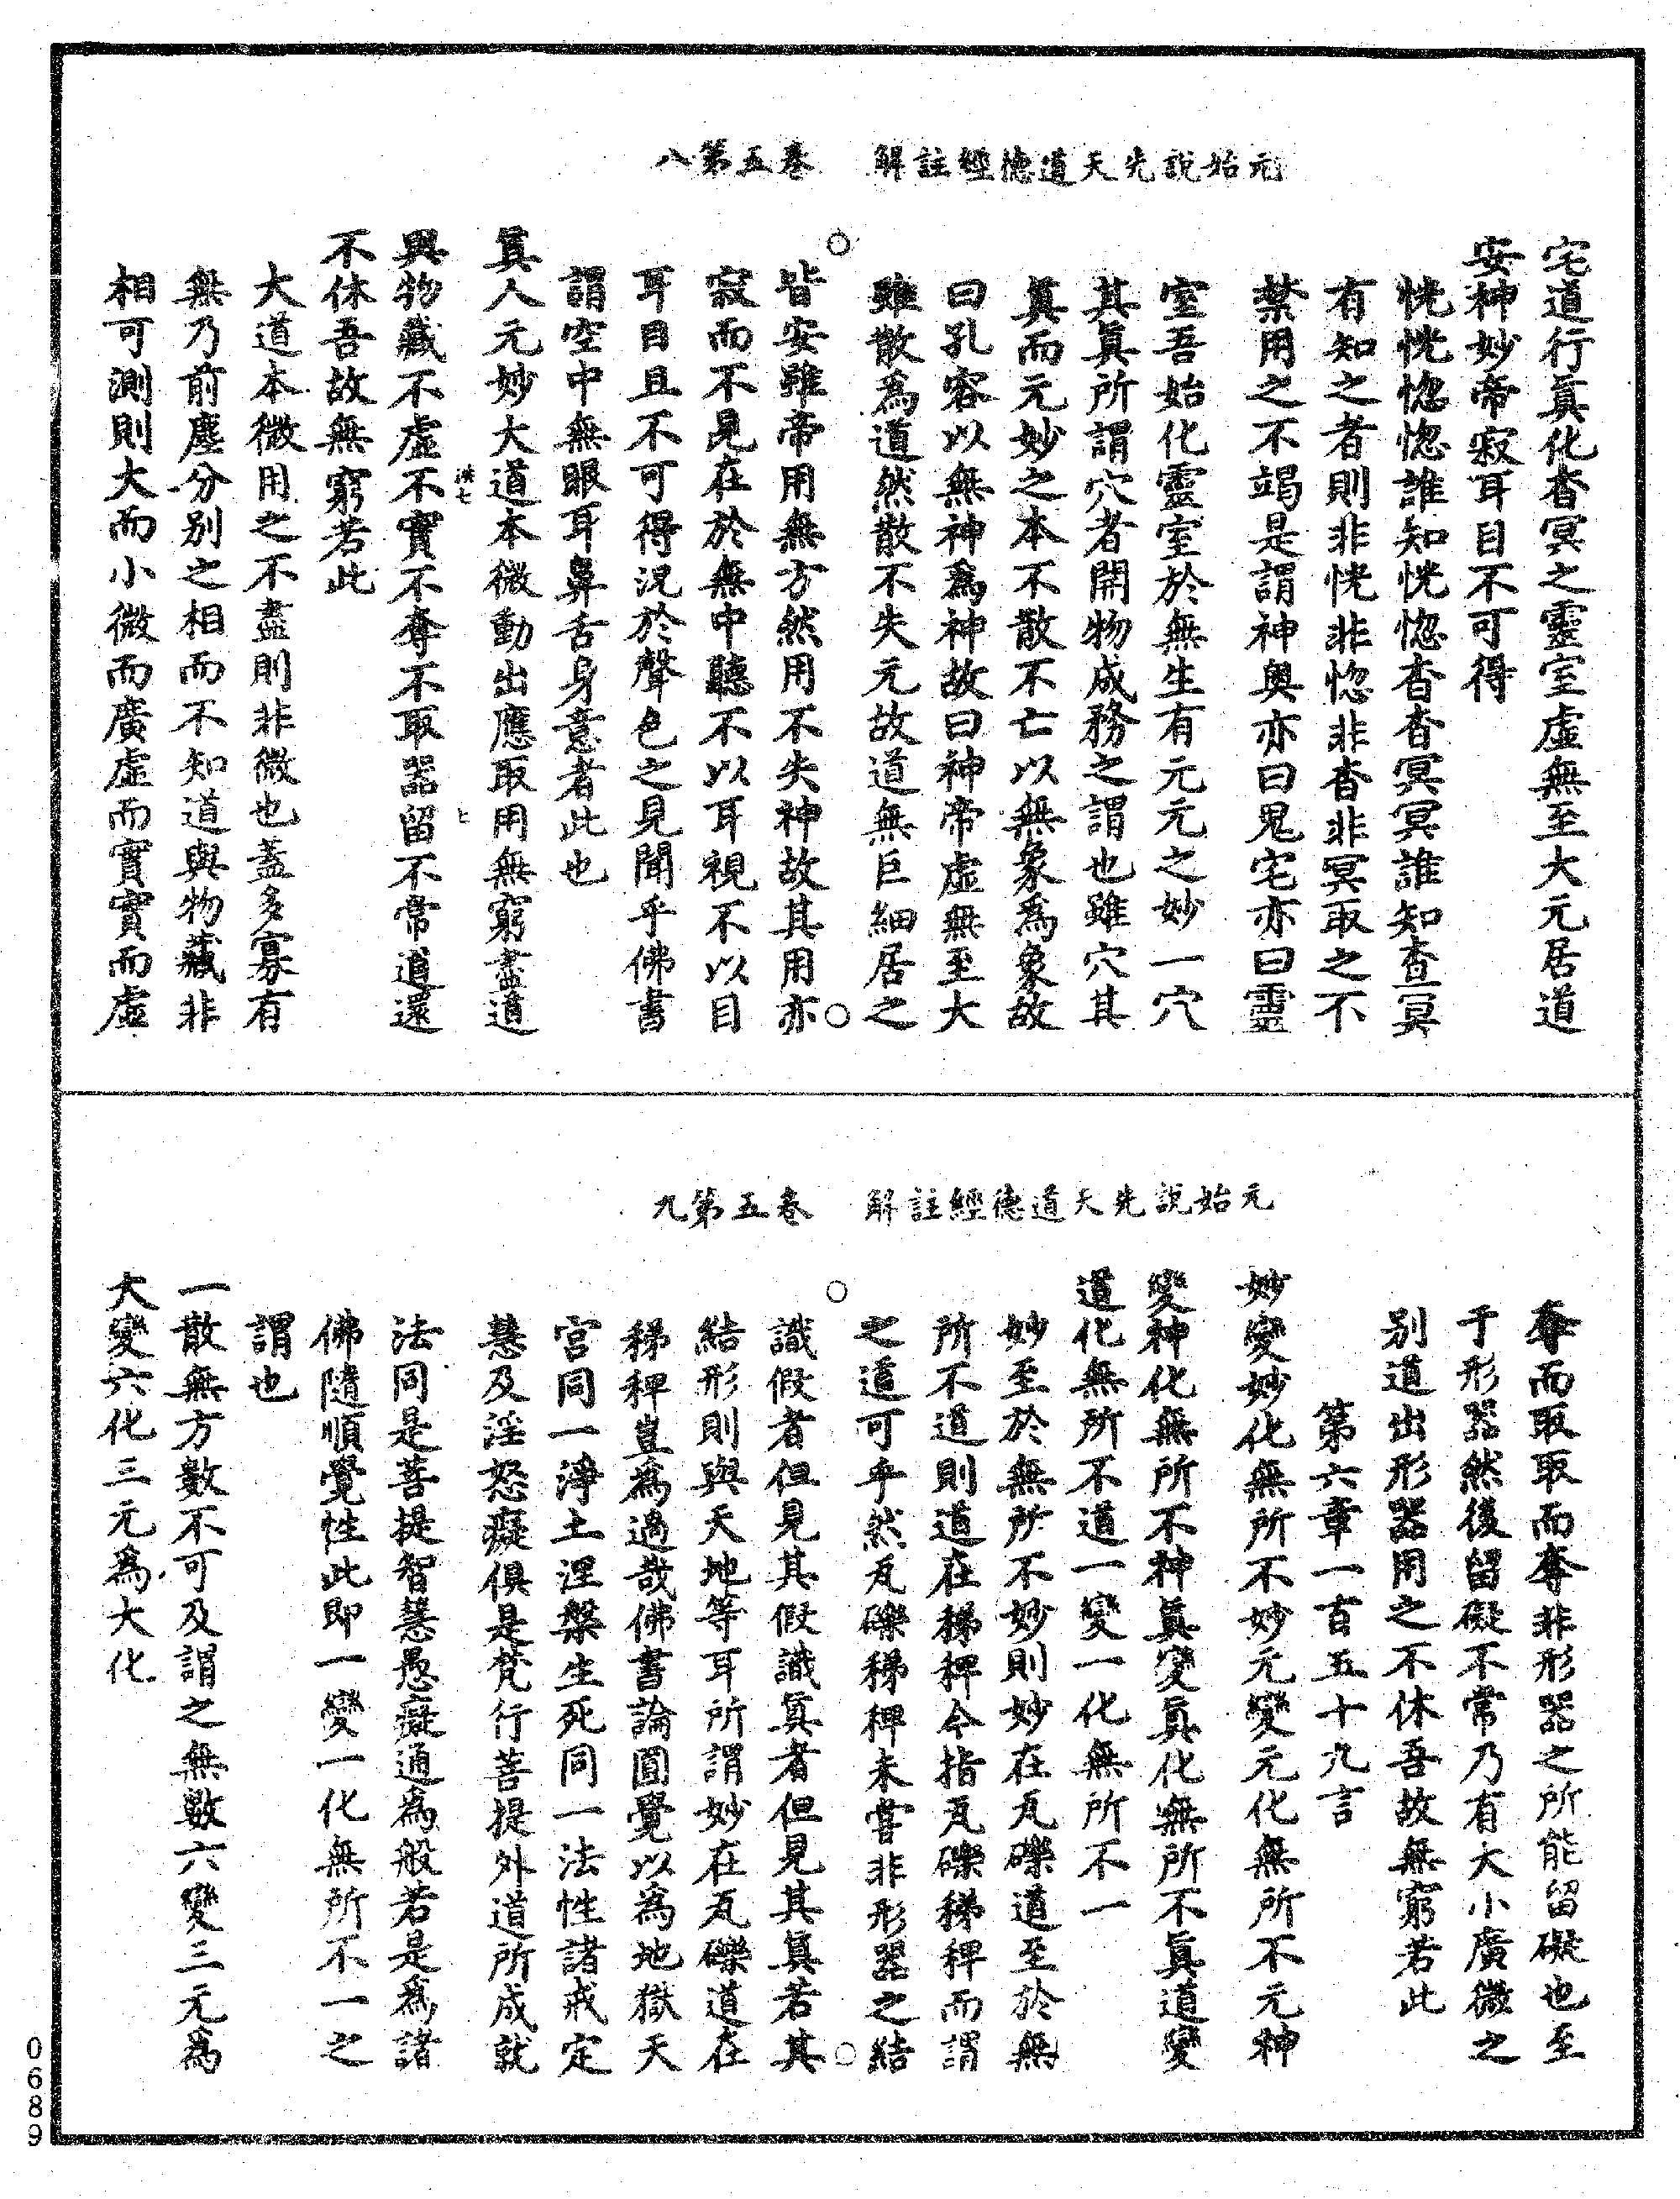 元始說先天道德經註解　卷五第八
宅道行眞化杳冥之靈室虛無至大元居道
安神妙帝寂耳目不可得
恍恍惚惚誰知恍惚杳杳冥冥誰知杳冥
有知之者則非恍非惚非杳非冥取之不
禁用之不竭是謂神奧亦曰鬼宅亦曰靈
室吾始化靈室於無生有元元之妙一穴
其眞所謂穴者開物成務之謂也雖穴其
眞而元妙之本不散不亡以無象爲象故
曰孔容以無神爲神故曰神帝虛無至大
雖散爲道然散不失元故道無巨細居之
皆安雖帝用無方然用不失神故其用亦
寂而不見在於無中聽不以耳視不以目
耳目且不可得況於聲色之見聞乎佛書
謂空中無眼耳鼻舌身意者此也
眞人元妙大道本微動出應取用無窮盡道
與物藏不虛不實不奪不取器留不常道還
不休吾故無窮若此
大道本微用之不盡則非微也蓋多寡有
無乃前塵分别之相而不知道與物藏非
相可測則大而小微而廣虛而實實而虛
元始說先天道德經註解　卷五第九
奪而取取而奪非形器之所能留礙也至
于形器然後留礙不常乃有大小廣微之
别道出形器用之不休吾故無窮若此
第六章一百五十九言
妙變妙化無所不妙元變元化無所不元神
變神化無所不神眞變眞化無所不眞道變
道化無所不道一變一化無所不一
妙至於無所不妙則妙在瓦礫道至於無
所不道則道在稊稗今指瓦礫稊稗而謂
之道可乎然瓦礫稊稗未嘗非形器之結
識假者但見其假識眞者但見其眞若其
結形則與天地等耳所謂妙在瓦礫道在
稊稗豈爲過哉佛書論圓覺以爲地獄天
宫同一淨土涅槃生死同一法性諸戒定
慧及淫怒癡俱是梵行菩提外道所成就
法同是菩提智慧愚癡通爲般若是爲諸
佛隨順覺性此即一變一化無所不一之
謂也
一散無方數不可及謂之無數六變三元爲
大變六化三元爲大化
0689